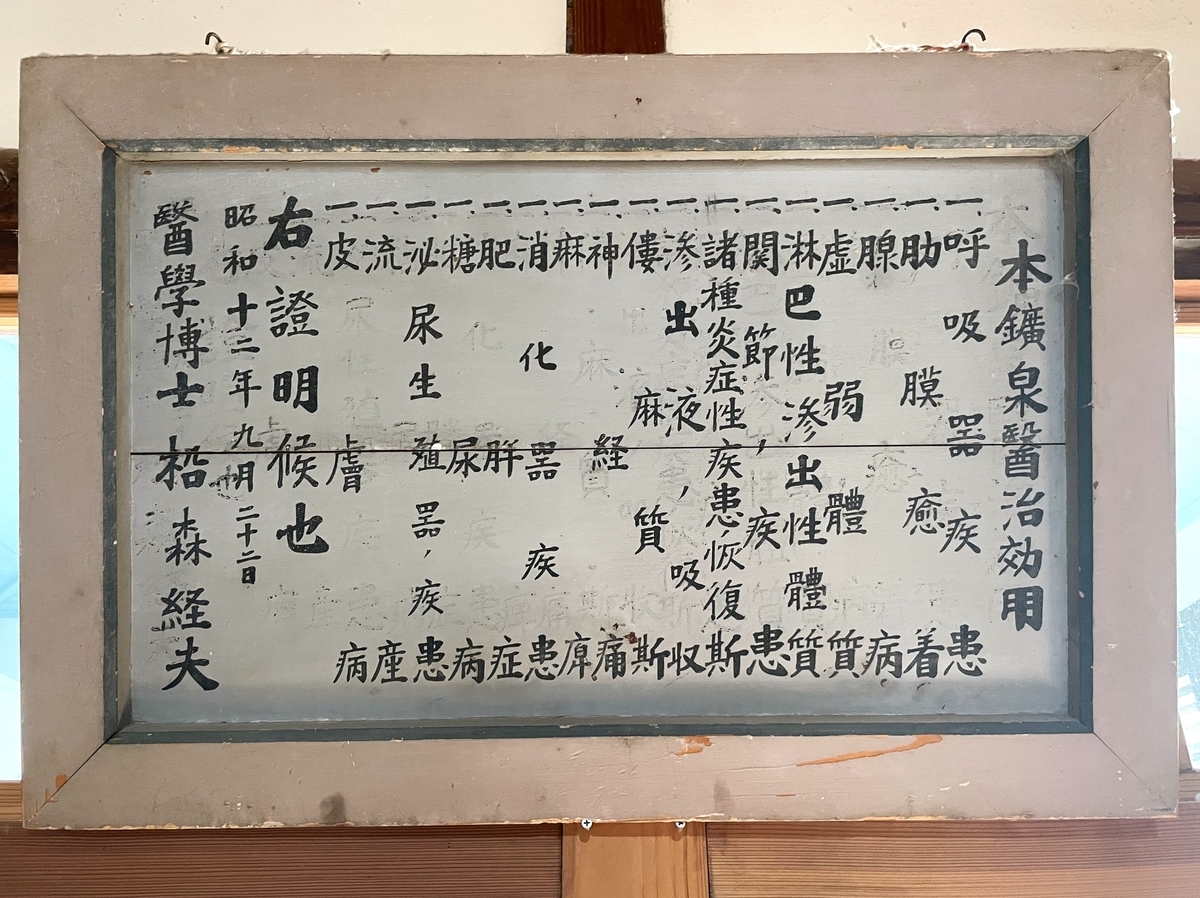 本鑛泉醫治効用
一、呼吸噐疾患
一、肋膜癒着
一、腺病
一、虚弱體質
一、淋巴性渗出性體質
一、関節、疾患
一、諸種炎症性疾患、恢復斯
一、渗出液、吸収
一、僂麻質斯
一、神経痛
一、麻痺
一、消化噐疾患
一、肥胖症
一、糖尿病
一、泌尿生殖噐、疾患
一、流産
一、皮膚病
右證明候也
昭和十二年九月二十二日
醫學博士柗森経夫